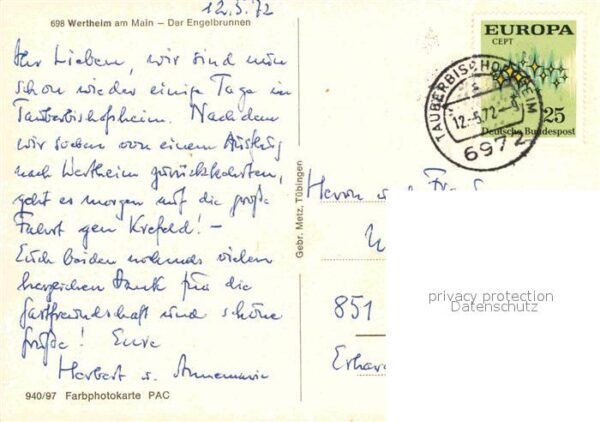 12.5.72
698 Wertheim am Main – Der Engelbrunnen
Ihr Lieben, wir sind nun
schon wieder einige Tage in
Tauberbischofsheim. Nachdem
wir soeben von einem Ausflug
nach Wertheim zurückkehrten,
geht es morgen auf die große
Fahrt gen Krefeld! –
Euch beiden nochmals vielen
herzlichen Dank für die
Gastfreundschaft und schöne
Grüße! Eure
Herbert u. Annemarie
940/97 Farbphotokarte PAC
Gebr. Metz, Tübingen
EUROPA
CEPT
25
Deutsche Bundespost
TAUBERBISCHOFSHEIM
12.-5.72.-9
6972
Herrn u. Fr
851
Erhar
privacy protection
Datenschutz